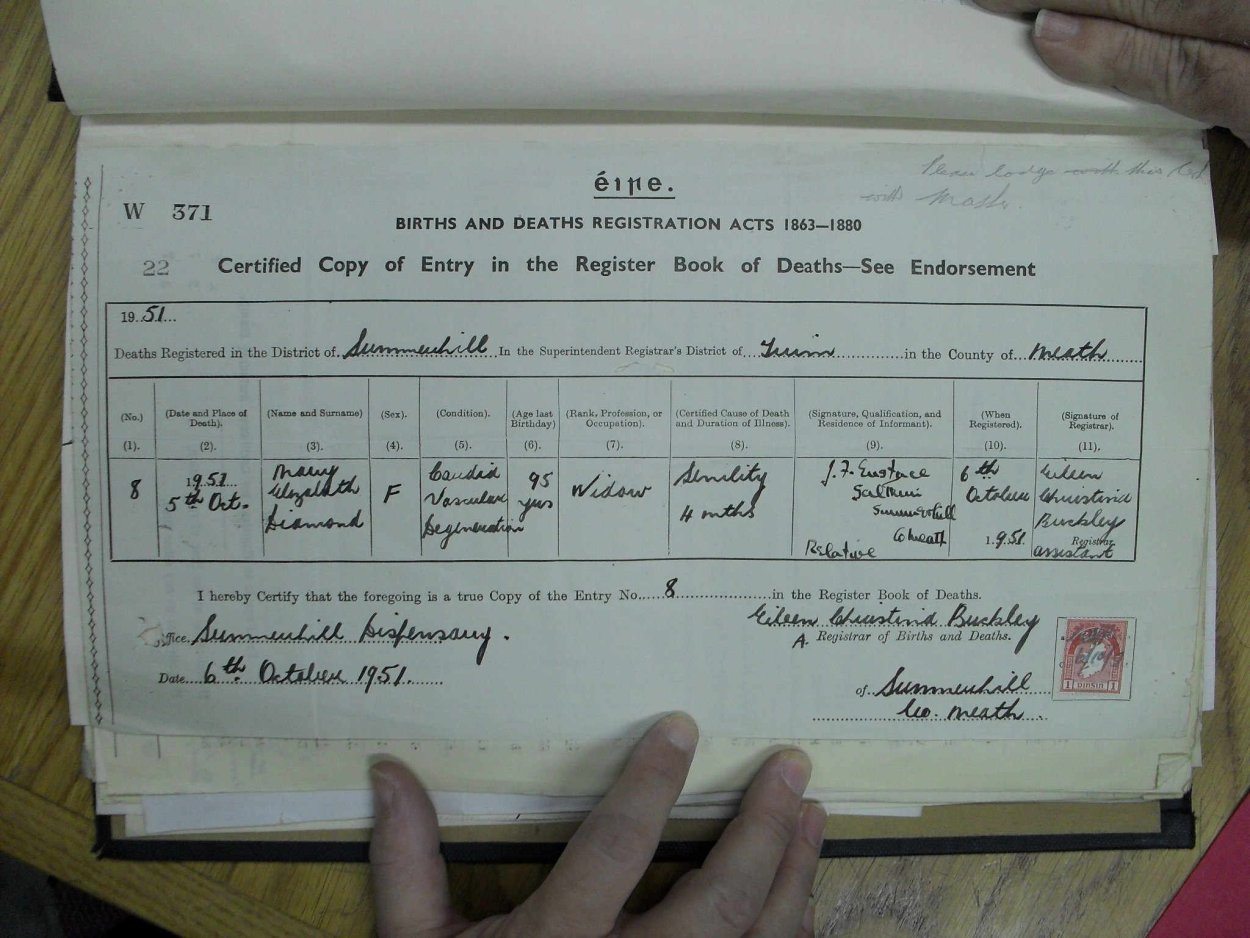 Please lodge with this
with Master.
éire.
W 371
BIRTHS AND DEATHS REGISTRATION ACTS 1863—1880
22
Certified Copy of Entry in the Register Book of Deaths—See Endorsement
19 51
Deaths Registered in the District of Summerhill In the Superintendent Registrar's District of Trim in the County of Meath
(No.) (Date and Place of Death). (Name and Surname) (Sex). (Condition). (Age last Birthday) (Rank, Profession, or Occupation). (Certified Cause of Death and Duration of Illness). (Signature, Qualification, and Residence of Informant). (When Registered). (Signature of Registrar).
(1). (2). (3). (4). (5). (6). (7). (8). (9). (10). (11).
8
1951
5th Oct.
Mary
Elizabeth
Diamond
F
Cardio
Vascular
Degeneration
95
yrs
Widow
Senility
4 mths
J. F. Eustace
Summerhill
Co Meath
Relative
6th
October
1951
Eileen
Christina
Buckley
Registrar
assistant
I hereby Certify that the foregoing is a true Copy of the Entry No. 8 in the Register Book of Deaths.
Eileen Christina Buckley
Office, Summerhill Dispensary.
A. Registrar of Births and Deaths.
Date 6th October 1951.
of Summerhill
Co. Meath.
1 PINSIN 1